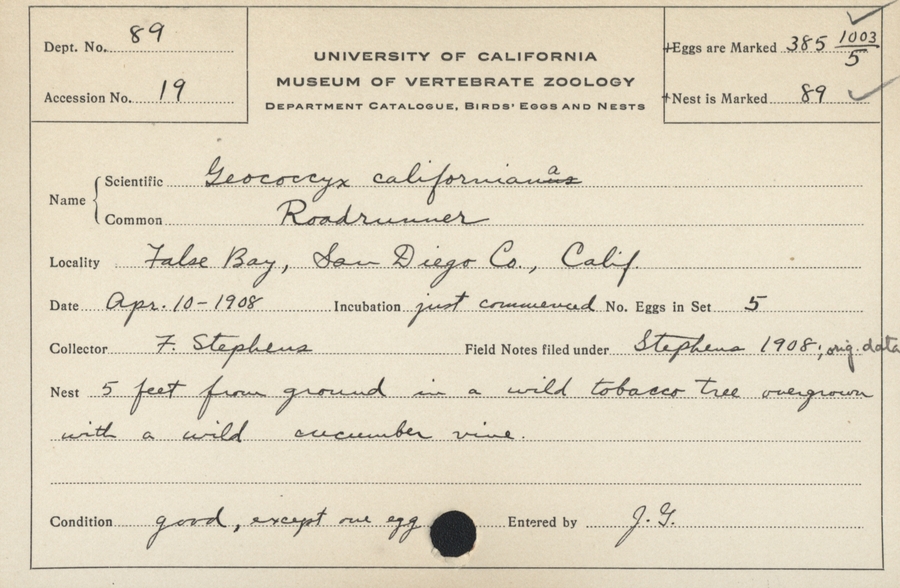 Dept. No. 89
Accession No. 19
UNIVERSITY OF CALIFORNIA
MUSEUM OF VERTEBRATE ZOOLOGY
DEPARTMENT CATALOGUE, BIRDS' EGGS AND NESTS
+Eggs are Marked 385 1003/5
+Nest is Marked 89
Name
Scientific Geococcyx californianusa
Common Roadrunner
Locality False Bay, San Diego Co., Calif.
Date Apr. 10-1908 Incubation just commenced No. Eggs in Set 5
Collector F. Stephens Field Notes filed under Stephens 1908; orig. data
Nest 5 feet from ground in a wild tobacco tree overgrown
with a wild cucumber vine.
Condition good, except one egg Entered by J. G.